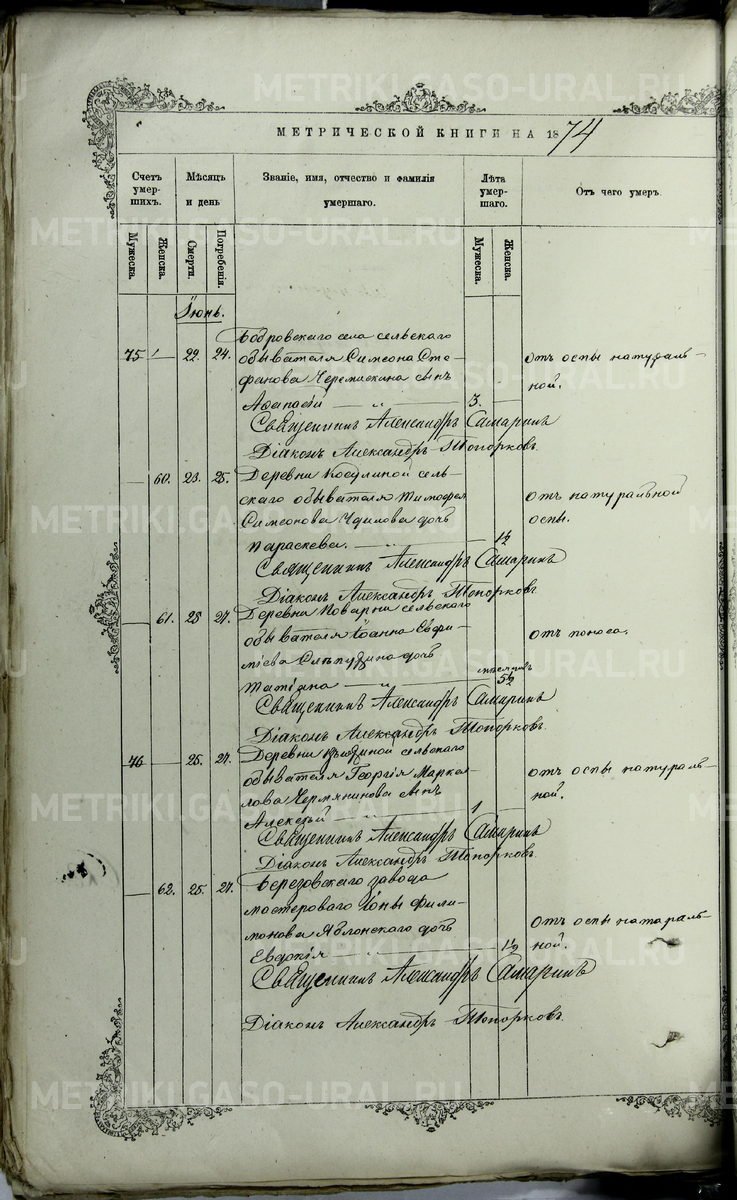 МЕТРИЧЕСКОЙ КНИГИ НА 1874
Счетъ умершихъ.
Мѣсяцъ и день
Званіе, имя, отчество и фамилія умершаго.
Лѣта умершаго.
Отъ чего умеръ.
Мужеска.
Женска.
Смерти.
Погребенія.
Мужеска.
Женска.
Іюнь.
Бобровскаго села сельскаго
75 22. 24. обывателя Симеона Сте- отъ оспы натураль-
фанова Черемискина сынъ ной.
Аѳанасій 3.
Священникъ Александръ Самаринъ
Діаконъ Александръ Топорковъ.
60. 23. 25. Деревни Косулиной сель-
скаго обывателя Тимофея отъ натуральной
Симеонова дочь оспы.
Параскева. 1½
Священникъ Александръ Самаринъ
Діаконъ Александръ Топорковъ
61. 25 27. Деревни Поварни сельскаго
обывателя Іоанна Евфи- отъ поноса.
міева дочь
Татіана месяцовъ 5½
Священникъ Александръ Самаринъ
Діаконъ Александръ Топорковъ.
76 25. 27. Деревни сельскаго
обывателя Георгія Марка- отъ оспы натураль-
лова сынъ ной.
Алексѣй 1
Священникъ Александръ Самаринъ
Діаконъ Александръ Топорковъ.
62. 25. 27. Березовскаго завода
мастероваго Іоны Фили-
монова Яблонскаго дочь отъ оспы натураль-
Евдокія 1½ ной.
Священникъ Александръ Самаринъ
Діаконъ Александръ Топорковъ.
METRIKI.GASO-URAL.RU